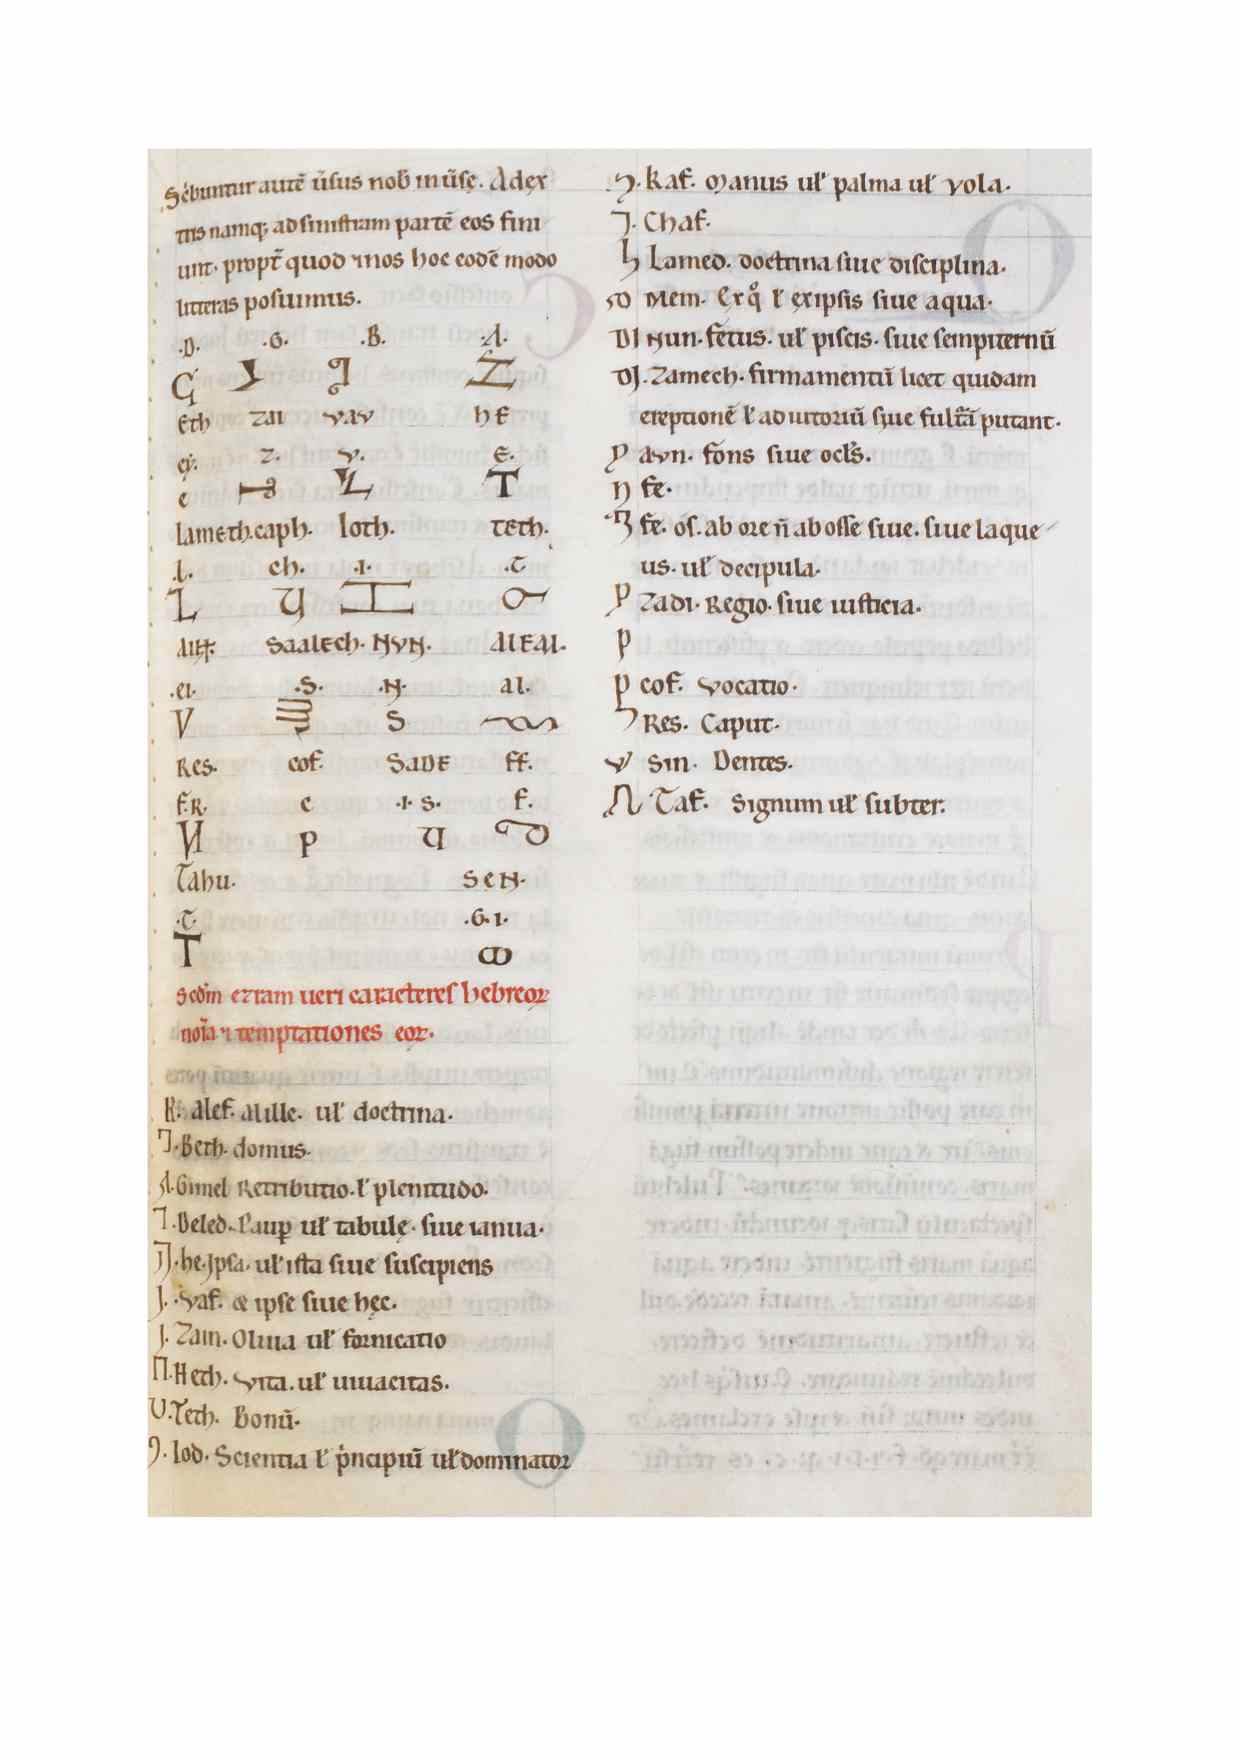 Scͥbuntur autē ūsus nob̄ inūsę. A dex
tris namq; ad sinistram partē eos fini
unt. propt̄ quod ⁊nos hoc eodē modo
litteras posuimus.
.D. .G. .B. .A.
Eth zai vav hE
z. v. E.
e
lameth. caph. loth. tEth.
.l. ch. .i. .T
saalech. NVN. AIEAI.
.ei. .S. .N. al.
V S
REs. cof. SADE ff.
f.R. c .i.s. f.
p
Tahu. SEN.
.T. .G.i.
T
Scd̄m ezram ueri caracteres hebreoꝝ
noīa ⁊ temptationes eoꝝ.
alef. Mille. uł doctrina.
Beth. domus.
Gimel Retributio. ł plenitudo.
Deled. Paup̱ uł tabulę. siue ianua.
he. Ipsa. uł ista siue suscipiens
Vaf. & ipse siue hęc.
Zain. Oliua uł fornicatio
Heth. Vita. uł uiuacitas.
Teth. Bonū.
Iod. Scientia ł pͥncipiū uł dominator
Kaf. Manus uł palma uł vola.
Chaf.
Lamed. doctrina siue disciplina.
Mem. Ex qͦ ł ex ipsis siue aqua.
Nun. fetus. uł piscis. siue sempiternū
Zamech. firmamentū licet quidam
ereptionē ł adiutoriū siue fult̄ā putant.
Ayn. fons siue ocłs.
fe.
fe. os. ab ore n̄ ab osse siue. siue laque
us. uł decipula.
Zadi. Regio. siue iusticia.
cof. Vocatio.
Res. Caput.
Sin. Dentes.
Taf. Signum uł subter.